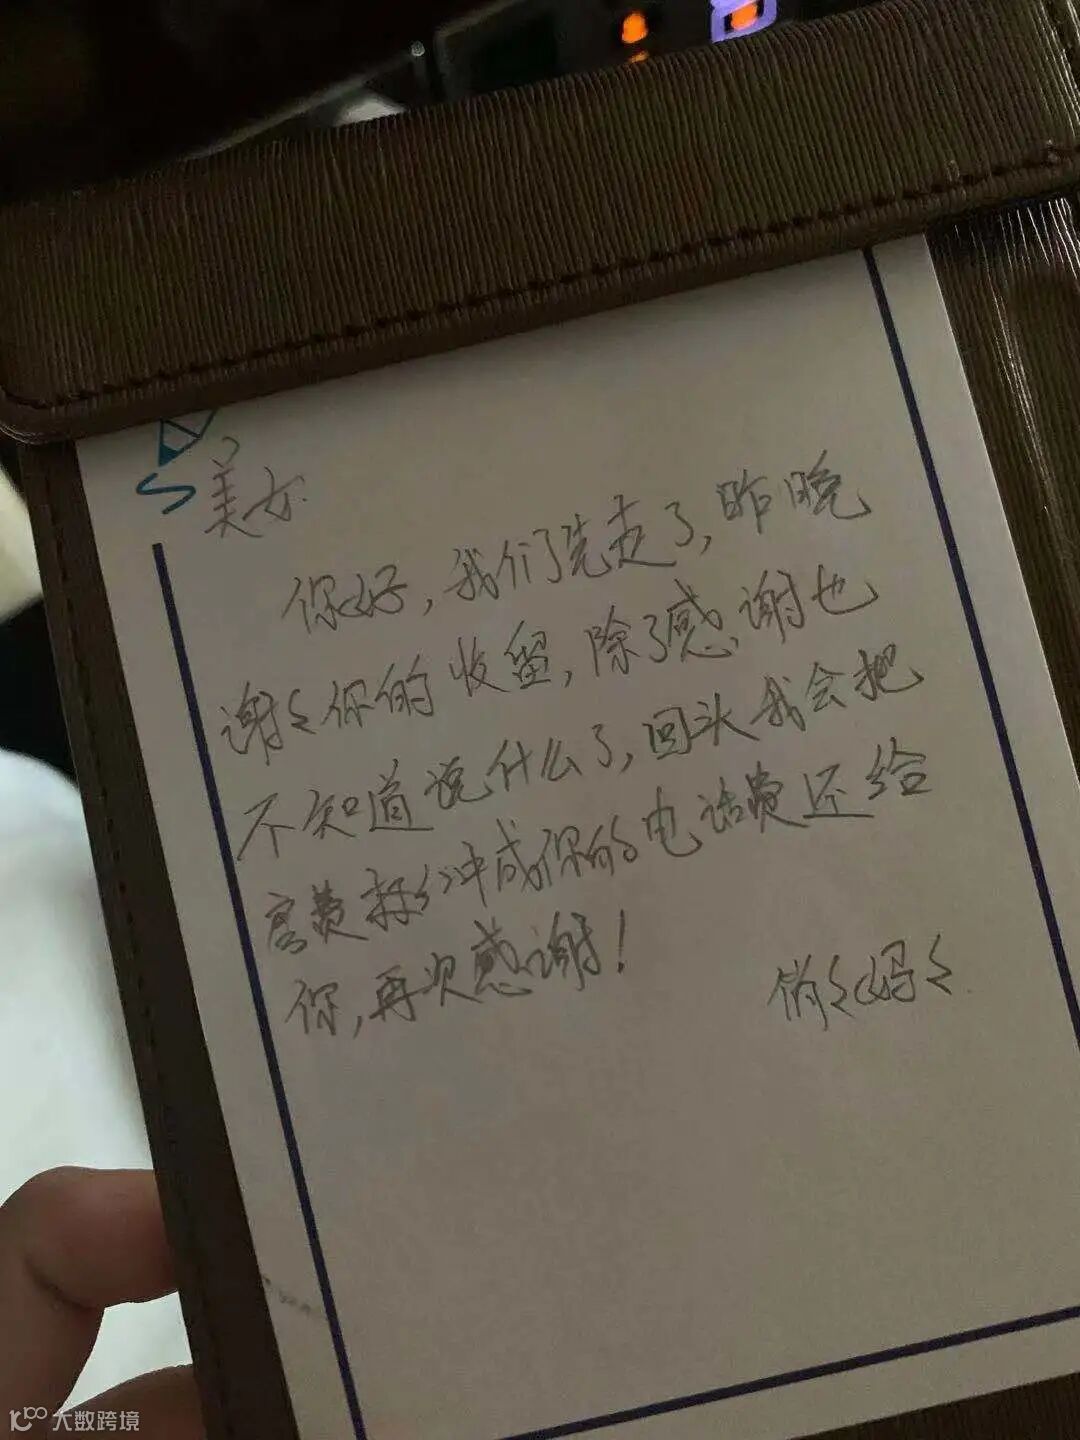 美女
你好，我们先走了，昨晚
谢谢你的收留，除了感谢也
不知道说什么了，回头我会把
房费积分冲成你的电话费还给
你，再次感谢！
俏俏妈妈
大数跨境